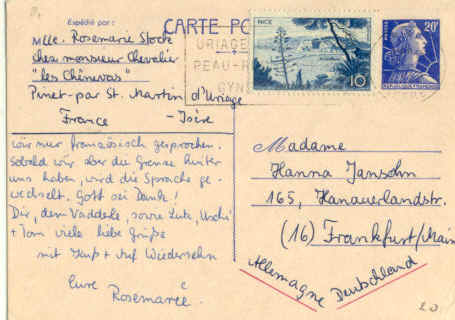 Expédié par :
CARTE PO
Mlle. Rosemarie Storck
chez monsieur Chevalier
"les Chênevas"
Pinet-par St. Martin d'Uriage
France - Isère
NICE
10
20F
RÉPUBLIQUE FRANÇAISE
URIAGE
PEAU-R
GYN
wir nur französisch gesprochen.
Sobald wir aber die Grenze hinter
uns haben, wird die Sprache ge-
wechselt. Gott sei Dank!
Dir, dem Vadderle, sowie Lutz, Uschi
+ Tom viele liebe Grüße
mit Kuss + Auf Wiedersehn
Eure
Rosemarie.
Madame
Hanna Jansohn
165, Hanauerlandstr.
(16) Frankfurt/Main
Allemagne Deutschland
20